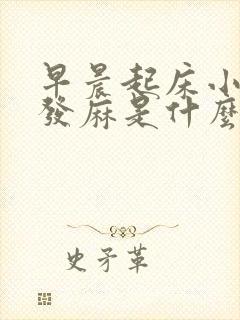 早晨起床小
發麻是什麼
史矛革